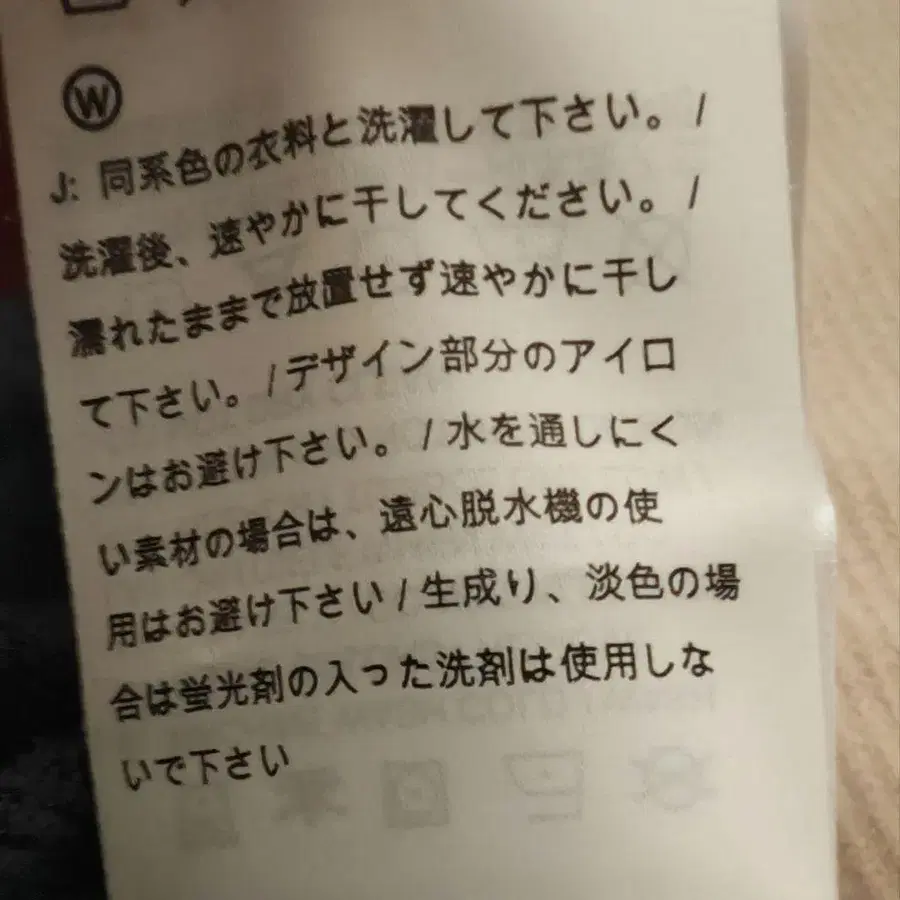 W
J: 同系色の衣料と洗濯して下さい。/
洗濯後、速やかに干してください。/
濡れたままで放置せず速やかに干し
て下さい。/デザイン部分のアイロ
ンはお避け下さい。/水を通しにく
い素材の場合は、遠心脱水機の使
用はお避け下さい/生成り、淡色の場
合は蛍光剤の入った洗剤は使用しな
いで下さい